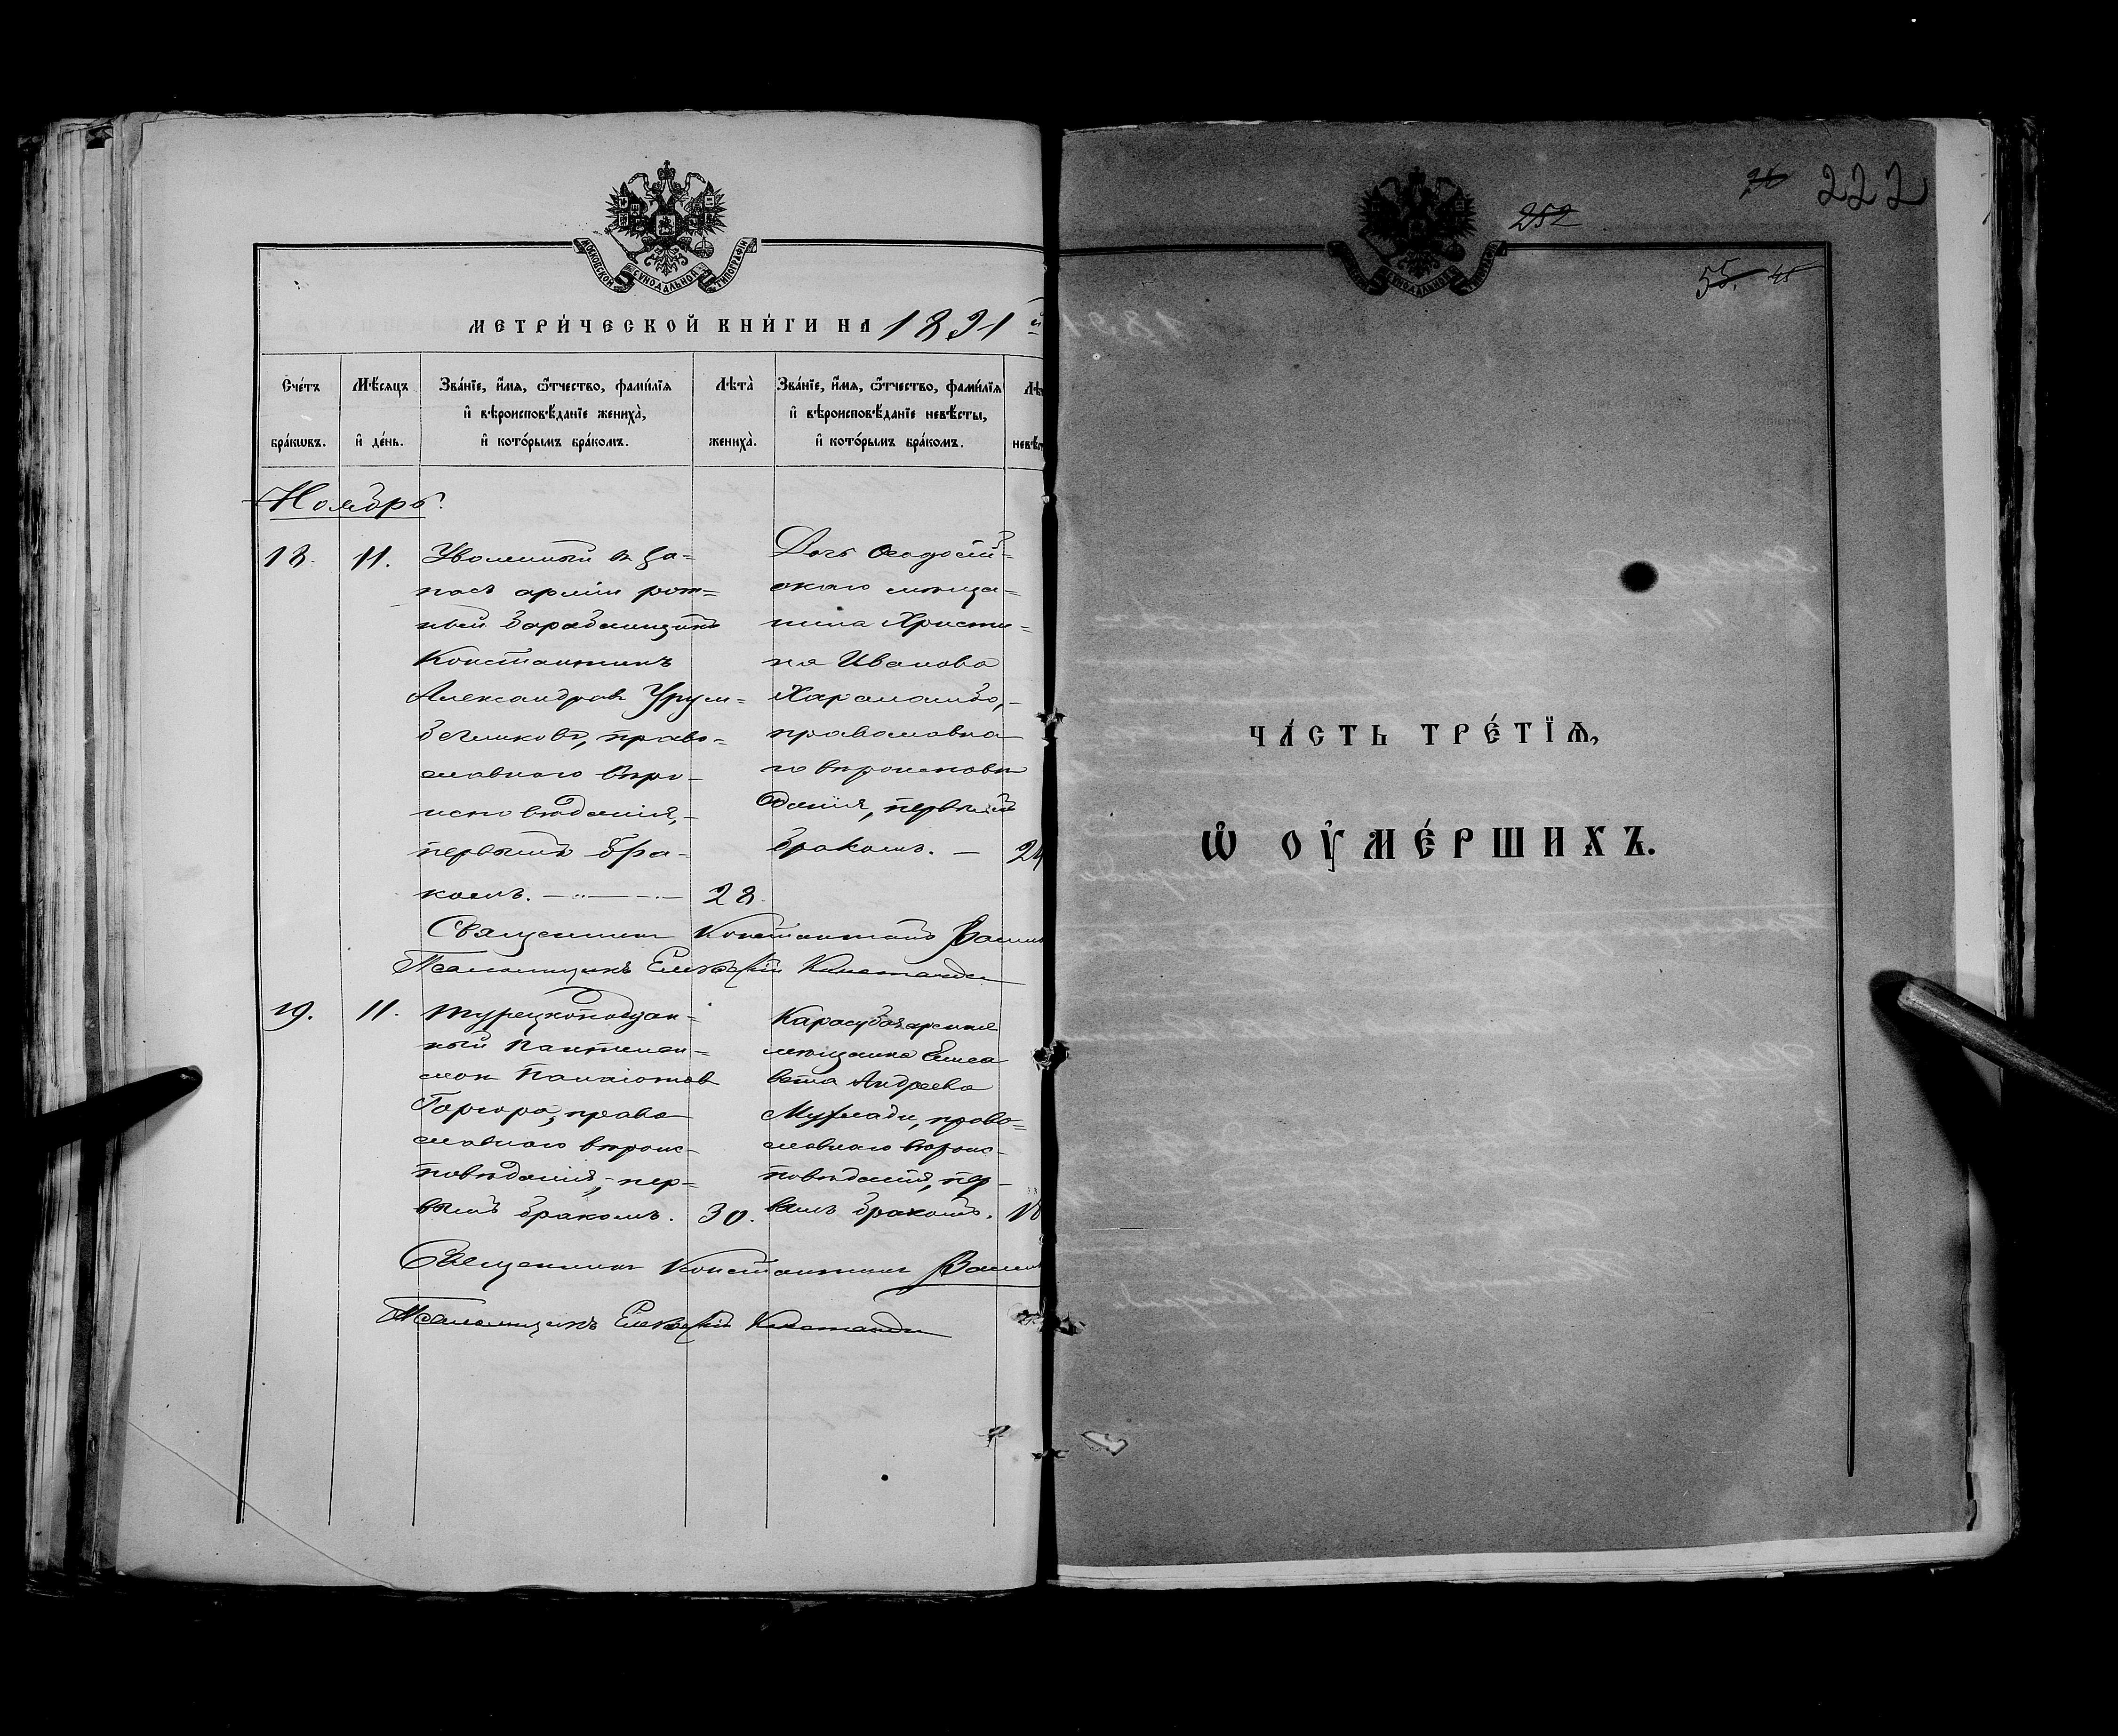 МОСКОВСКОЙ СѴНОДАЛЬНОЙ ТИПОГРАФІИ
МЕТРИ́ЧЕСКОЙ КНИ́ГИ НА 1891 й
Сче́тъ бра́кωвъ.
Мѣ́сяцъ и҆ де́нь.
Зва́нїе, и҆́мя, ѿ́тчество, фами́лїя
и҆ вѣроисповѣ́данїе жениха̀,
и҆ кото́рымъ бра́комъ.
Лѣта̀ жениха̀.
Зва́нїе, и҆́мя, ѿ́тчество, фами́лїя
и҆ вѣроисповѣ́данїе невѣ́сты,
и҆ кото́рымъ бра́комъ.
Лѣ
невѣ́с
Ноябрь.
18. 11.
Уволенный въ за=
пасъ арміи рот=
ный барабанщикъ
Константинъ
Александровъ Урум=
бегликовъ, право=
славнаго вѣро-
исповѣданія,-
первымъ бра-
комъ.
28.
Дочь Ѳеодосій=
скаго мѣща=
нина Христи=
на Иванова
Харламбо,-
православна
го вѣроисповѣ
данія, первымъ
бракомъ. — 24
Священникъ Константинъ
Псаломщикъ Елевферій Константи
19. 11.
Турецкоподдан=
ный Пантелей=
мон Панаіотов
Горгора, право
славнаго вѣроис-
повѣданія,- пер=
вымъ бракомъ.
30.
Карасубазарская
мѣщанка Елиса
вета Андреева
Мурлади, право=
славнаго вѣроис-
повѣданія, пер-
вымъ бракомъ. 18
Священникъ Константинъ
Псаломщикъ Елевферій Константи
МОСКОВСКОЙ СѴНОДАЛЬНОЙ ТИПОГРАФІИ
76 222
252
55. 45
ЧА́СТЬ ТРЕ́ТЇѦ,
Ѡ҆ ОУ҆МЕ́РШИХЪ.